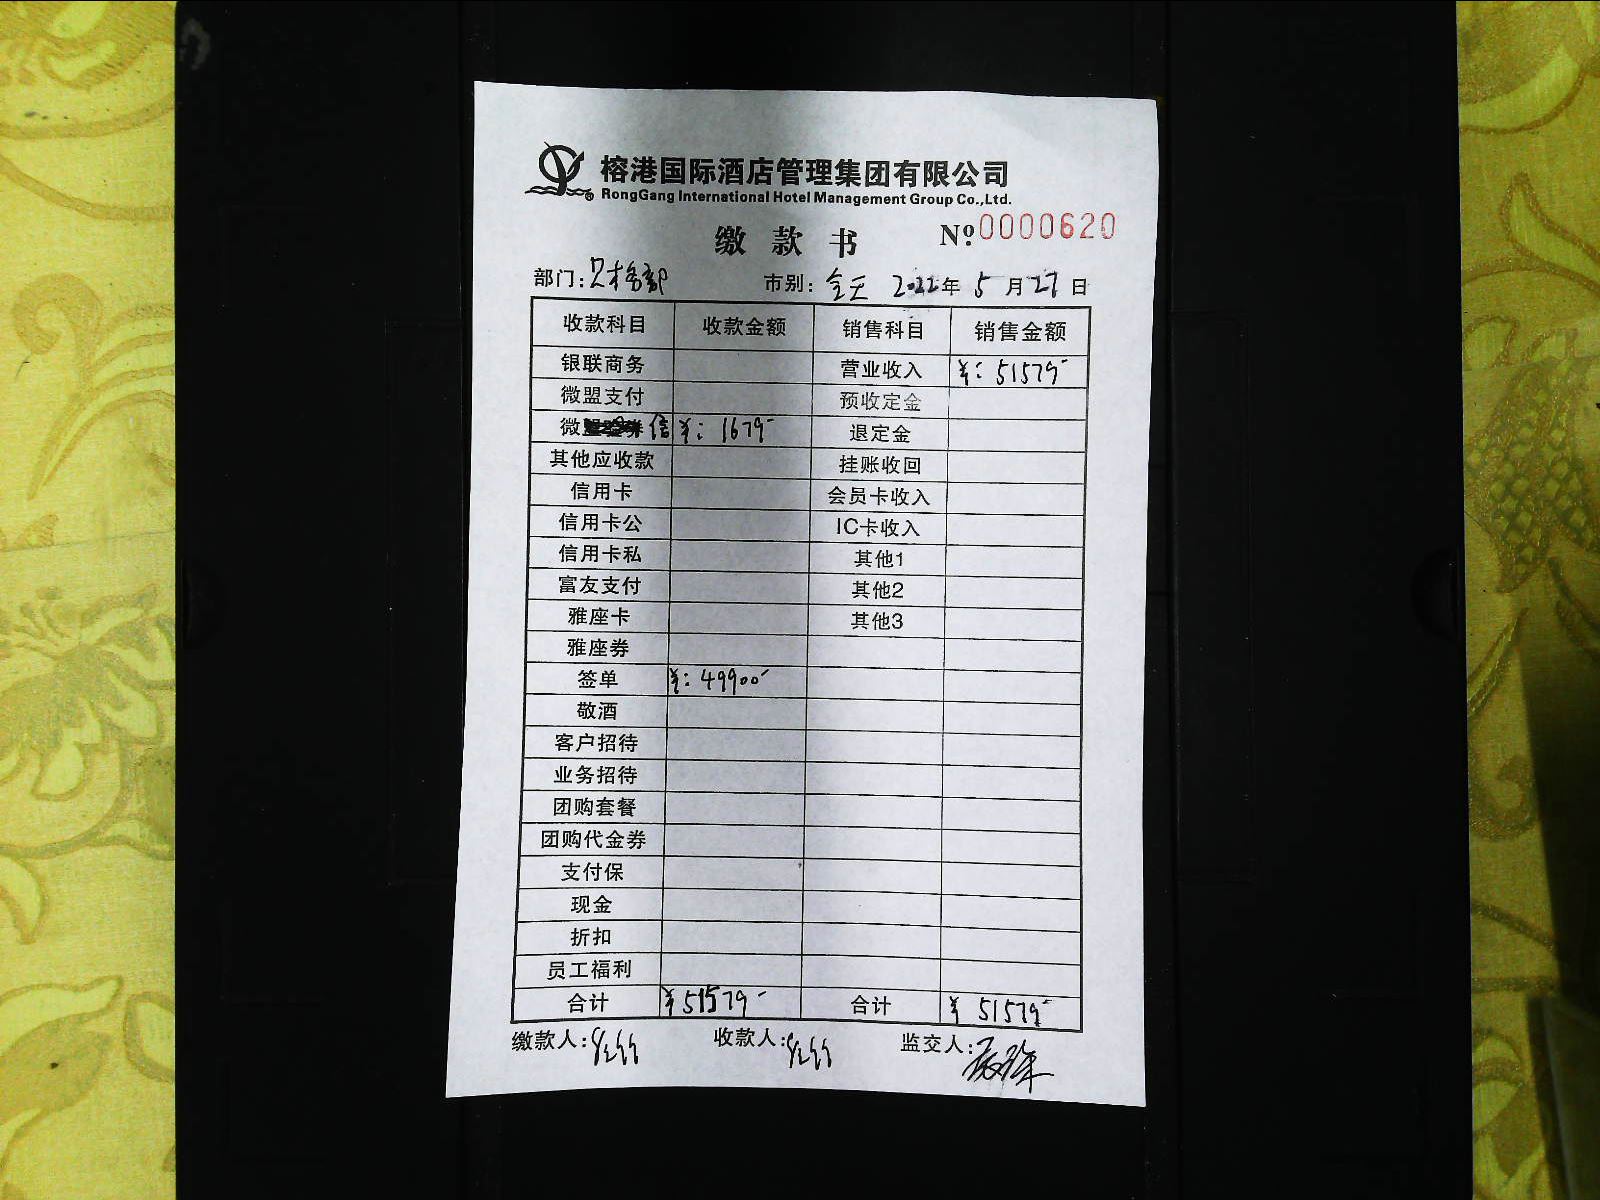 榕港国际酒店管理集团有限公司
RongGang International Hotel Management Group Co.,Ltd.
缴款书 Nº 0000620
部门: 市别: 全天 2022年 5月27日
收款科目 收款金额 销售科目 销售金额
银联商务 营业收入 ¥: 51579-
微盟支付 预收定金
微信 ¥: 1679- 退定金
其他应收款 挂账收回
信用卡 会员卡收入
信用卡公 IC卡收入
信用卡私 其他1
富友支付 其他2
雅座卡 其他3
雅座券
签单 ¥: 49900-
敬酒
客户招待
业务招待
团购套餐
团购代金券
支付保
现金
折扣
员工福利
合计 ¥51579- 合计 ¥ 51579-
缴款人: 收款人: 监交人: